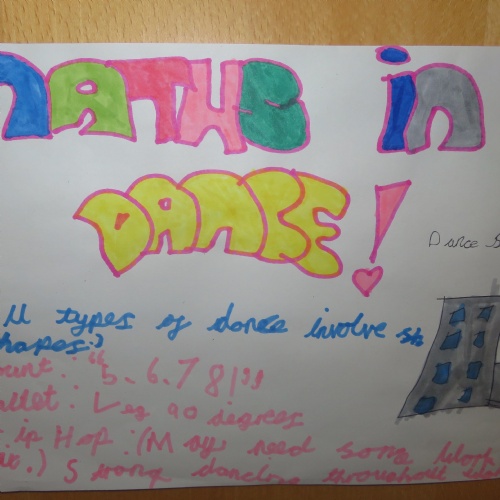 MATHS in
DANCE!
Dance S
ll types of dance involve sh
hapes:)
ount: "5.6.7 8!"
allet: Leg 90 degrees
ip Hop: (May need some work
Strong dancing throughout